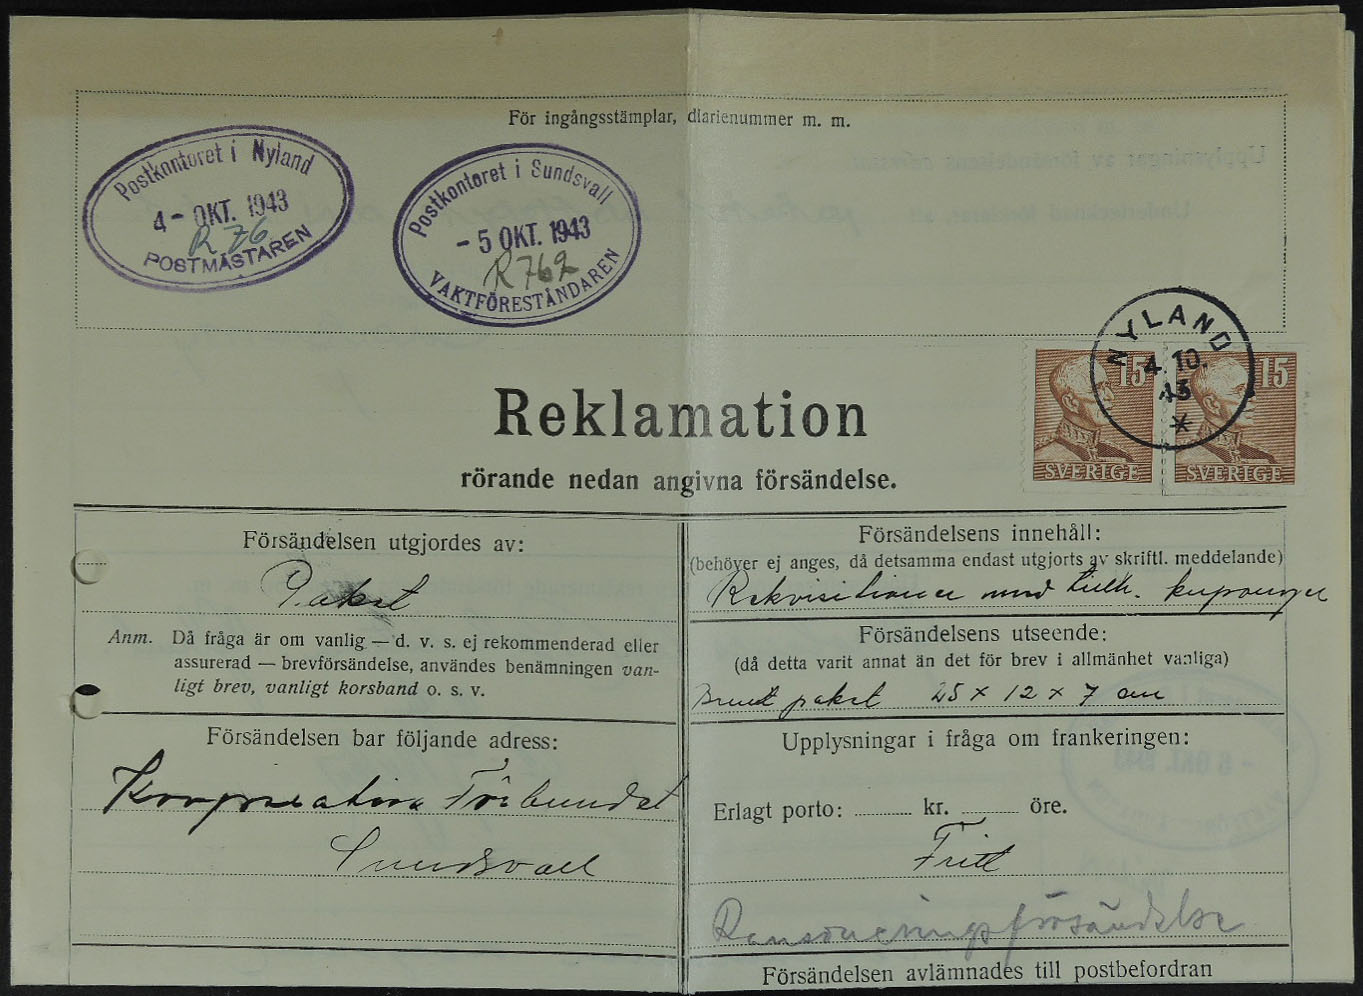 För ingångsstämplar, diarienummer m. m.
Postkontoret i Nyland
4 - OKT. 1943
R 76
POSTMÄSTAREN
Postkontoret i Sundsvall
- 5 OKT. 1943
R 762
VAKTFÖRESTÅNDAREN
NYLAND
4.10.
43
15
SVERIGE
15
SVERIGE
Reklamation
rörande nedan angivna försändelse.
Försändelsen utgjordes av:
Paket
Anm. Då fråga är om vanlig — d. v. s. ej rekommenderad eller
assurerad — brevförsändelse, användes benämningen van-
ligt brev, vanligt korsband o. s. v.
Försändelsen bar följande adress:
Kooperativa Förbundet
Sundsvall
Försändelsens innehåll:
(behöver ej anges, då detsamma endast utgjorts av skriftl. meddelande)
Rekvisitioner med tillh. kuponger
Försändelsens utseende:
(då detta varit annat än det för brev i allmänhet vanliga)
Brunt paket 25 x 12 x 7 cm
Upplysningar i fråga om frankeringen:
Erlagt porto: kr. öre.
Fritt
Ransoneringsförsändelse
Försändelsen avlämnades till postbefordran